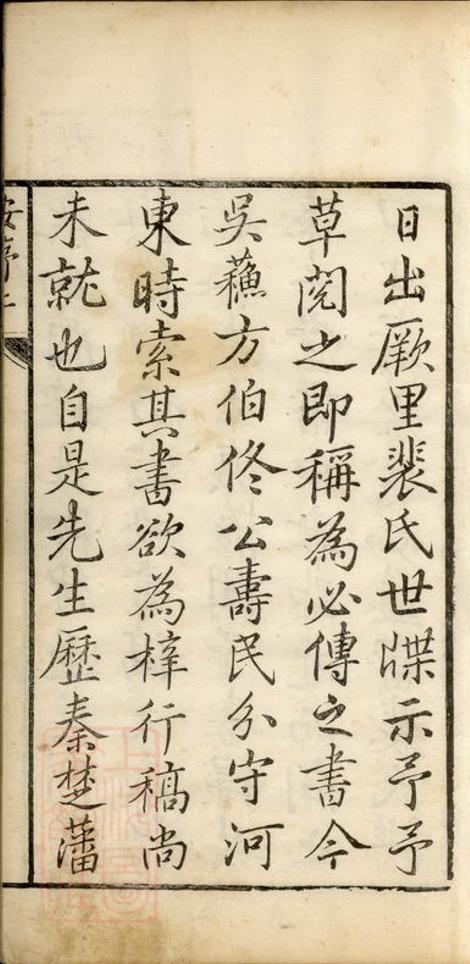 日出厥里裴氏世牒示予予
草閱之即稱為必傳之書今
吳蘓方伯佟公壽民分守河
東時索其書欲為梓行稿尚
未就也自是先生歷秦楚藩
序二